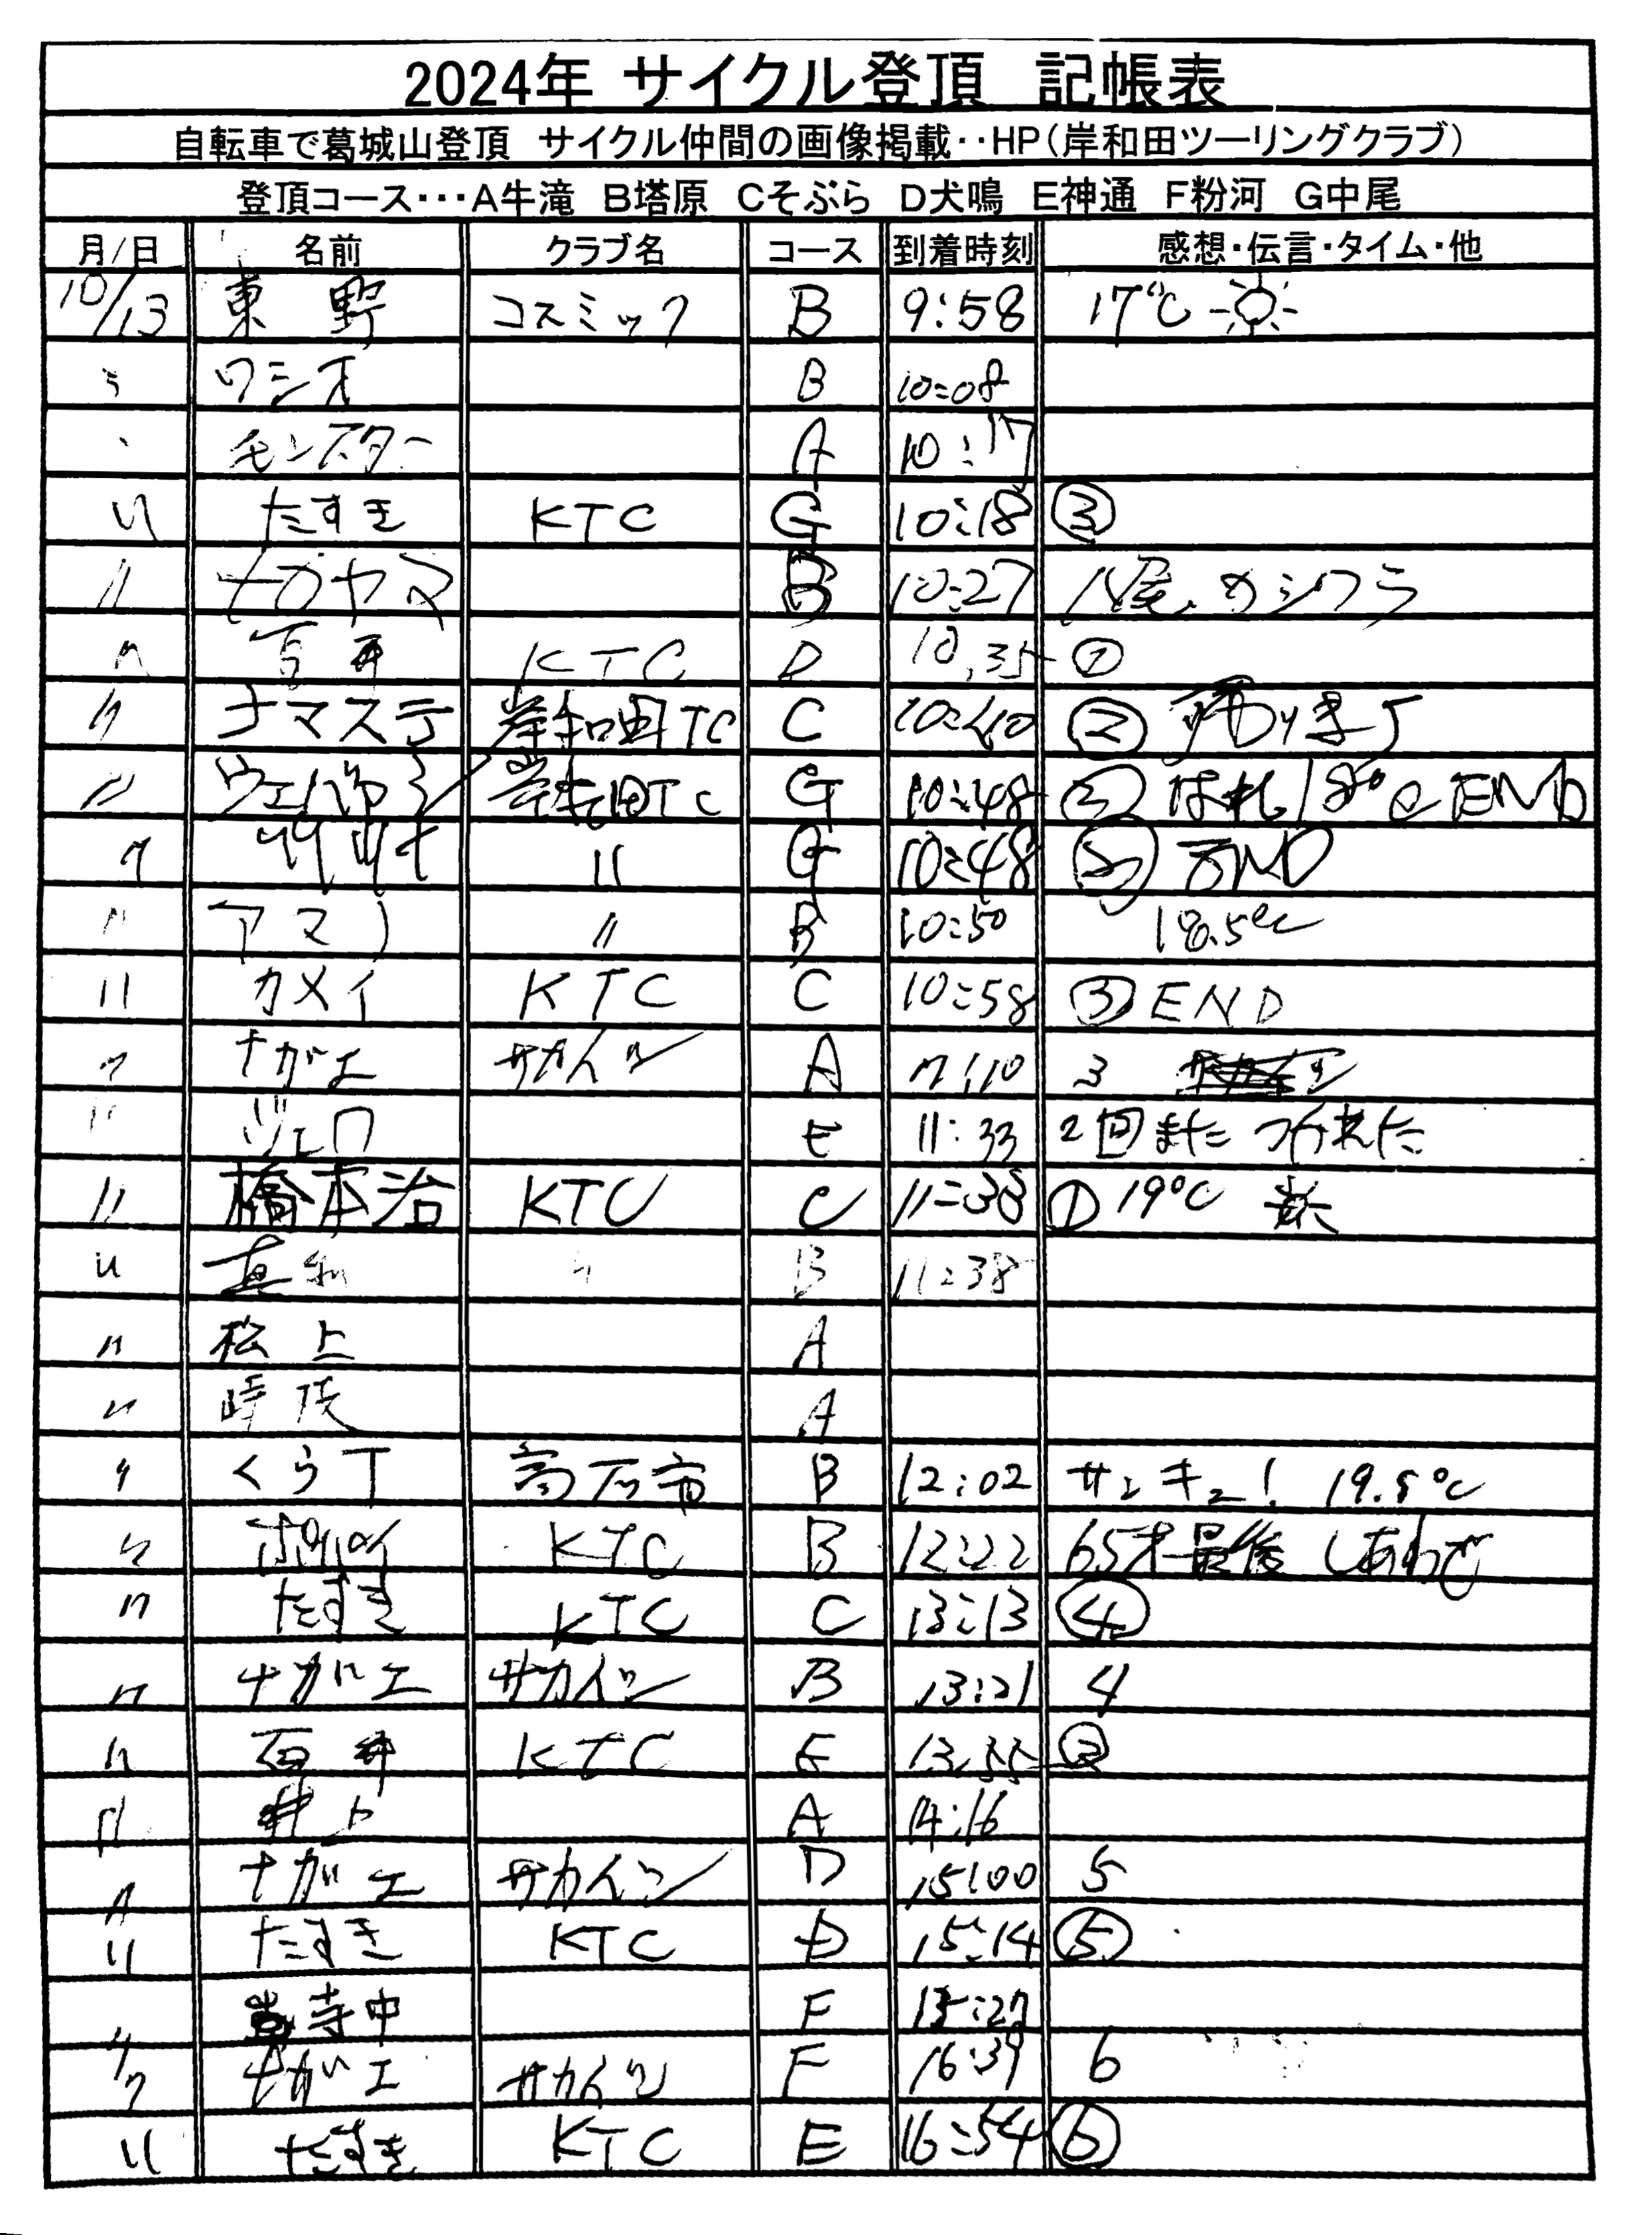 2024年 サイクル登頂 記帳表
自転車で葛城山登頂 サイクル仲間の画像掲載‥HP(岸和田ツーリングクラブ)
登頂コース…A牛滝 B塔原 Cそぶら D犬鳴 E神通 F粉河 G中尾
月/日 名前 クラブ名 コース 到着時刻 感想・伝言・タイム・他
10/13 東野 コスミック B 9:58 17℃
ワシオ B 10:08
モンスター A 10:17
〃 たすき KTC G 10:18 ③
〃 ナカヤマ B 10:27 八尾、カシワラ
〃 KTC D 10.35 ①
〃 ナマステ 岸和田TC C 10:40 ②
〃 岸和田TC G 10:48 ② 18℃ END
〃 〃 G 10:48 END
〃 アマノ 〃 B 10:50 18.5℃
〃 カメイ KTC C 10:58 ③ END
〃 ナガエ サカイン A 11:10 3
〃 ジェロ E 11:33 2回また つかれた
〃 橋本治 KTC C 11:38 ① 19℃
〃 〃 B 11:38
〃 松上 A
〃 A
〃 くら丁 高石市 B 12:02 サンキュ! 19.5℃
〃 KTC B 12:22 65才最後 しあわせ
〃 たすき KTC C 13:13 ④
〃 ナガエ サカイン B 13:21 4
〃 百井 KTC E 13.55 ②
〃 井上 A 14:16
〃 ナガエ サカイン D 15:00 5
〃 たすき KTC D 15:14 ⑤
〃 寺中 F 15:27
〃 ナガエ サカイン F 16:39 6
〃 たすき KTC E 16:54 ⑥